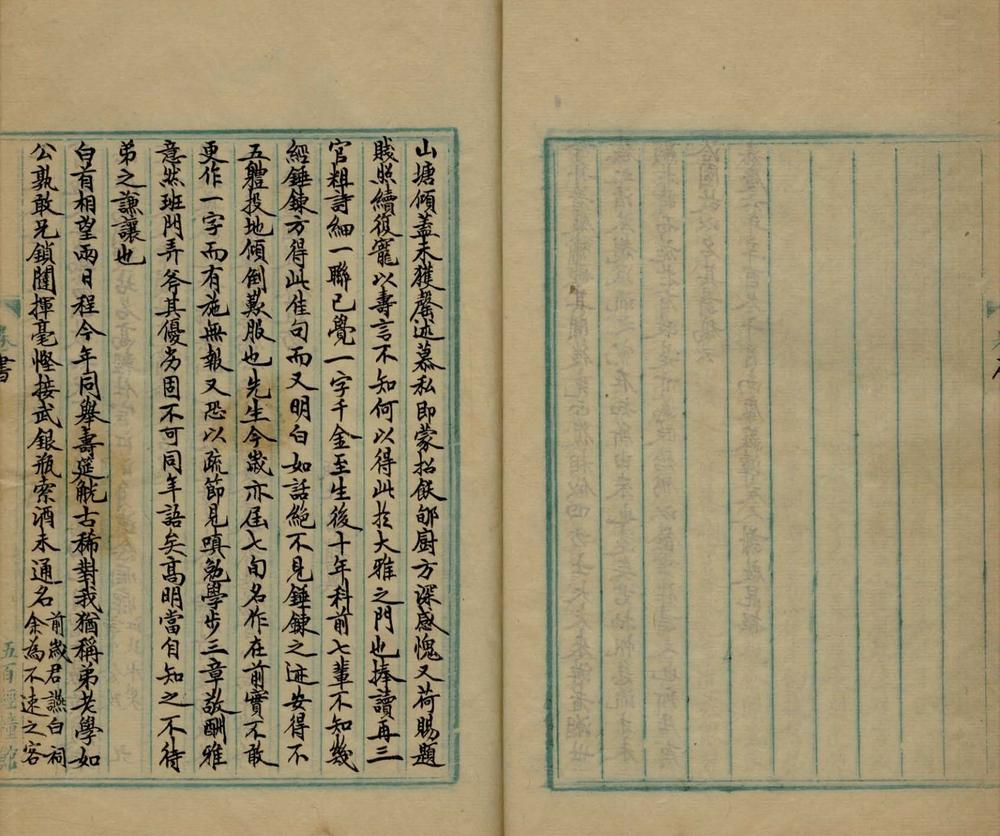 山塘傾蓋未獲罄述慕私即蒙招飲郇廚方深感愧又荷賜題
賤照續復寵以壽言不知何以得此於大雅之門也捧讀再三
官粗詩細一聯已覺一字千金至生後十年科前七輩不知幾
經錘鍊方得此佳句而又明白如話絕不見錘鍊之迹安得不
五體投地傾倒歎服也先生今歲亦屆七旬名作在前實不敢
更作一字而有施無報又恐以疏節見嗔勉學步三章敬酬雅
意然班門弄斧其優劣固不可同年語矣高明當自知之不待
弟之謙讓也
白首相望兩日程今年同舉壽筵觥古稀對我猶稱弟老學如
公孰敢兄鎖闈揮毫慳接武銀瓶索酒未通名前歲君讌白祠
余為不速之客
書
五百經幢館